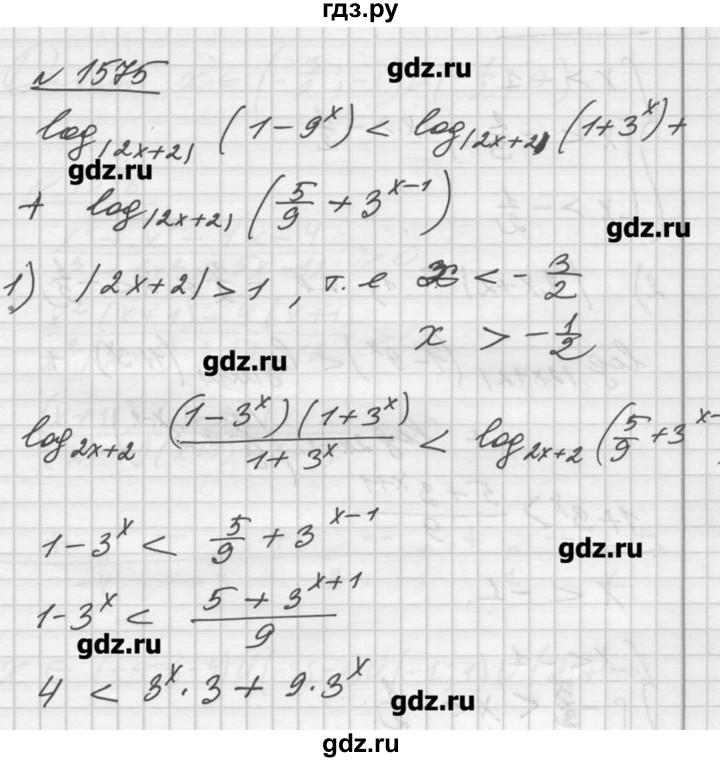 гдз.ру
N 1575
gdz.ru
log|2x+2| (1-9^x) < log|2x+2| (1+3^x) +
gdz.ru
+ log|2x+2| (5/9 + 3^(x-1))
gdz.ru
1) |2x+2| > 1, т.е x < -3/2
x > -1/2
gdz.ru
log2x+2 (1-3^x)(1+3^x)/(1+3^x) < log2x+2 (5/9 + 3^(x-
1-3^x < 5/9 + 3^(x-1)
gdz.ru
1-3^x < (5+3^(x+1))/9
gdz.ru
4 < 3^x·3 + 9·3^x
gdz.ru
gdz.ru